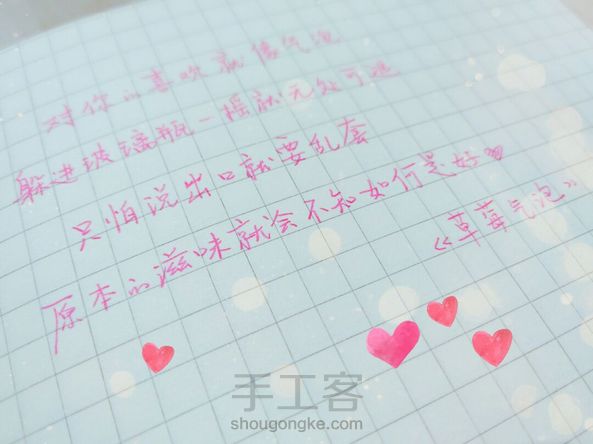 对你的喜欢就像气泡
躲进玻璃瓶一摇就无处可逃
只怕说出口就要乱套
原本的滋味就会不知如何是好
《草莓气泡》
手工客
shougongke.com